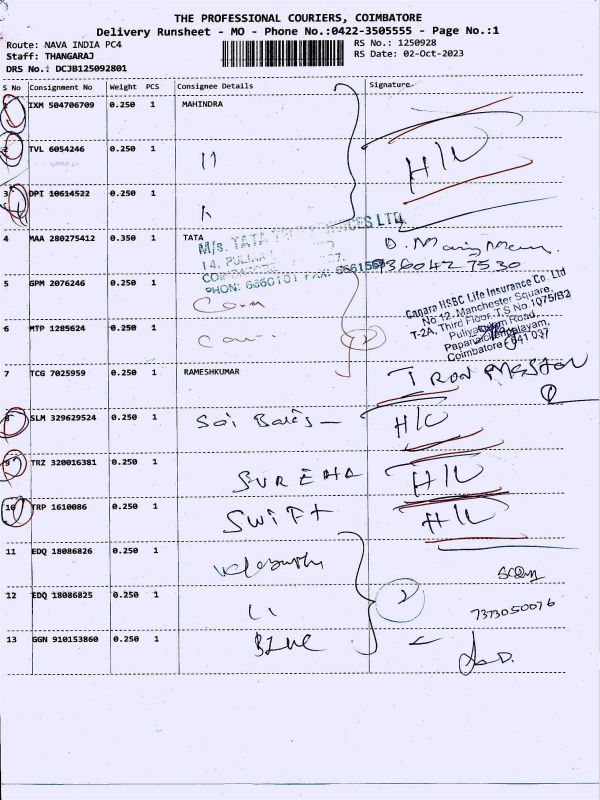 THE PROFESSIONAL COURIERS, COIMBATORE
Delivery Runsheet - MO - Phone No.:0422-3505555 - Page No.:1
Route: NAVA INDIA PC4
RS No.: 1250928
Staff: THANGARAJ
RS Date: 02-Oct-2023
DRS No.: DCJB125092801
S No Consignment No Weight PCS Consignee Details Signature
1 IXM 504706709 0.250 1 MAHINDRA
2 TVL 6054246 0.250 1 11
H/L
3 DPI 10614522 0.250 1
4 MAA 280275412 0.350 1 TATA
M/s. TATA
14, PULI
PHON: 6660101 FAX: 6661
5 GPM 2076246 0.250 1
Canara HSBC Life Insurance Co. Ltd
No.12, Manchester Square,
T-2A, Third Floor, T.S No.1075/B2
Road,
Coimbatore - 641 037
6 MTP 1285624 0.250 1
7 TCG 7025959 0.250 1 RAMESHKUMAR
8 SLM 329629524 0.250 1 Sai H/L
9 TRZ 320016381 0.250 1 H/L
10 TRP 1610086 0.250 1 SWIFT H/L
11 EDQ 18086826 0.250 1
12 EDQ 18086825 0.250 1 11 2
7373050076
13 GGN 910153860 0.250 1